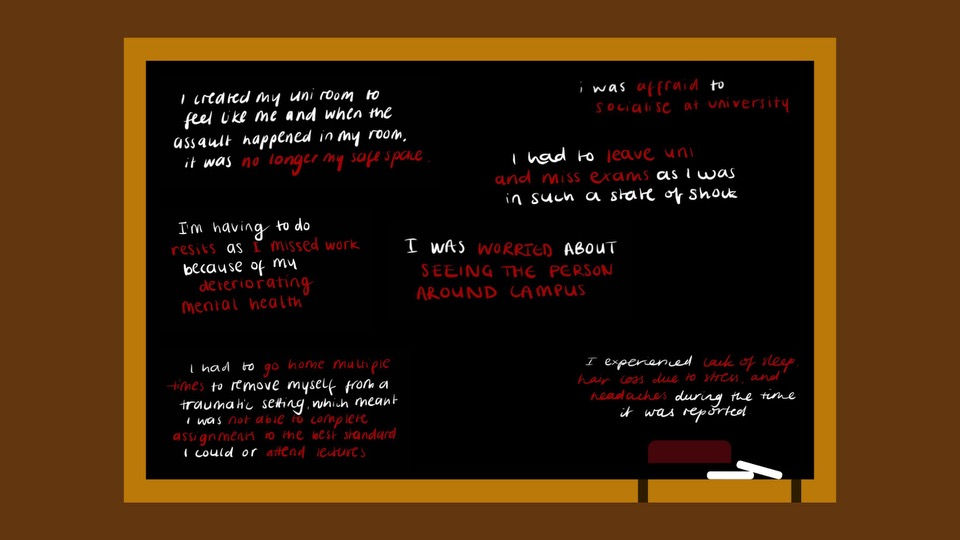 I created my uni room to
feel like me and when the
assault happened in my room,
it was no longer my safe space.
i was affraid to
socialise at university
I had to leave uni
and miss exams as I was
in such a state of shock
I'm having to do
resits as I missed work
because of my
deteriorating
mental health
I WAS WORRIED ABOUT
SEEING THE PERSON
AROUND CAMPUS
I had to go home multiple
times to remove myself from a
traumatic setting, which meant
I was not able to complete
assignments to the best standard
I could or attend lectures
I experienced lack of sleep,
hair loss due to stress, and
headaches during the time
it was reported